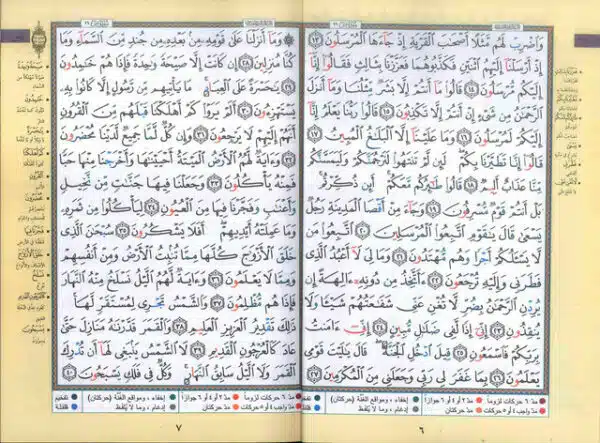 وَٱضْرِبْ لَهُم مَّثَلًا أَصْحَٰبَ ٱلْقَرْيَةِ إِذْ جَآءَهَا ٱلْمُرْسَلُونَ ﴿١٣﴾
إِذْ أَرْسَلْنَآ إِلَيْهِمُ ٱثْنَيْنِ فَكَذَّبُوهُمَا فَعَزَّزْنَا بِثَالِثٍ فَقَالُوٓا۟ إِنَّآ
إِلَيْكُم مُّرْسَلُونَ ﴿١٤﴾ قَالُوا۟ مَآ أَنتُمْ إِلَّا بَشَرٌ مِّثْلُنَا وَمَآ أَنزَلَ
ٱلرَّحْمَٰنُ مِن شَىْءٍ إِنْ أَنتُمْ إِلَّا تَكْذِبُونَ ﴿١٥﴾ قَالُوا۟ رَبُّنَا يَعْلَمُ إِنَّآ
إِلَيْكُمْ لَمُرْسَلُونَ ﴿١٦﴾ وَمَا عَلَيْنَآ إِلَّا ٱلْبَلَٰغُ ٱلْمُبِينُ ﴿١٧﴾
قَالُوٓا۟ إِنَّا تَطَيَّرْنَا بِكُمْ لَئِن لَّمْ تَنتَهُوا۟ لَنَرْجُمَنَّكُمْ وَلَيَمَسَّنَّكُم
مِّنَّا عَذَابٌ أَلِيمٌ ﴿١٨﴾ قَالُوا۟ طَٰٓئِرُكُم مَّعَكُمْ أَئِن ذُكِّرْتُم
بَلْ أَنتُمْ قَوْمٌ مُّسْرِفُونَ ﴿١٩﴾ وَجَآءَ مِنْ أَقْصَا ٱلْمَدِينَةِ رَجُلٌ
يَسْعَىٰ قَالَ يَٰقَوْمِ ٱتَّبِعُوا۟ ٱلْمُرْسَلِينَ ﴿٢٠﴾ ٱتَّبِعُوا۟ مَن
لَّا يَسْـَٔلُكُمْ أَجْرًا وَهُم مُّهْتَدُونَ ﴿٢١﴾ وَمَا لِىَ لَآ أَعْبُدُ ٱلَّذِى
فَطَرَنِى وَإِلَيْهِ تُرْجَعُونَ ﴿٢٢﴾ ءَأَتَّخِذُ مِن دُونِهِۦٓ ءَالِهَةً إِن
يُرِدْنِ ٱلرَّحْمَٰنُ بِضُرٍّ لَّا تُغْنِ عَنِّى شَفَٰعَتُهُمْ شَيْـًٔا وَلَا
يُنقِذُونِ ﴿٢٣﴾ إِنِّىٓ إِذًا لَّفِى ضَلَٰلٍ مُّبِينٍ ﴿٢٤﴾ إِنِّىٓ ءَامَنتُ
بِرَبِّكُمْ فَٱسْمَعُونِ ﴿٢٥﴾ قِيلَ ٱدْخُلِ ٱلْجَنَّةَ قَالَ يَٰلَيْتَ قَوْمِى
يَعْلَمُونَ ﴿٢٦﴾ بِمَا غَفَرَ لِى رَبِّى وَجَعَلَنِى مِنَ ٱلْمُكْرَمِينَ ﴿٢٧﴾
مدّ ٦ حركات لزوماً مدّ ٢ أو ٤ أو ٦ جوازاً إخفاء، ومواقع الغُنّة (حركتان) تفخيم
مدّ واجب ٤ أو ٥ حركات مدّ حركتان إدغام، وما لا يُلفظ قلقلة
٦
وَمَآ أَنزَلْنَا عَلَىٰ قَوْمِهِۦ مِنۢ بَعْدِهِۦ مِن جُندٍ مِّنَ ٱلسَّمَآءِ وَمَا
كُنَّا مُنزِلِينَ ﴿٢٨﴾ إِن كَانَتْ إِلَّا صَيْحَةً وَٰحِدَةً فَإِذَا هُمْ خَٰمِدُونَ
﴿٢٩﴾ يَٰحَسْرَةً عَلَى ٱلْعِبَادِ مَا يَأْتِيهِم مِّن رَّسُولٍ إِلَّا كَانُوا۟ بِهِۦ
يَسْتَهْزِءُونَ ﴿٣٠﴾ أَلَمْ يَرَوْا۟ كَمْ أَهْلَكْنَا قَبْلَهُم مِّنَ ٱلْقُرُونِ
أَنَّهُمْ إِلَيْهِمْ لَا يَرْجِعُونَ ﴿٣١﴾ وَإِن كُلٌّ لَّمَّا جَمِيعٌ لَّدَيْنَا مُحْضَرُونَ
﴿٣٢﴾ وَءَايَةٌ لَّهُمُ ٱلْأَرْضُ ٱلْمَيْتَةُ أَحْيَيْنَٰهَا وَأَخْرَجْنَا مِنْهَا حَبًّا
فَمِنْهُ يَأْكُلُونَ ﴿٣٣﴾ وَجَعَلْنَا فِيهَا جَنَّٰتٍ مِّن نَّخِيلٍ
وَأَعْنَٰبٍ وَفَجَّرْنَا فِيهَا مِنَ ٱلْعُيُونِ ﴿٣٤﴾ لِيَأْكُلُوا۟ مِن ثَمَرِهِۦ
وَمَا عَمِلَتْهُ أَيْدِيهِمْ أَفَلَا يَشْكُرُونَ ﴿٣٥﴾ سُبْحَٰنَ ٱلَّذِى
خَلَقَ ٱلْأَزْوَٰجَ كُلَّهَا مِمَّا تُنۢبِتُ ٱلْأَرْضُ وَمِنْ أَنفُسِهِمْ
وَمِمَّا لَا يَعْلَمُونَ ﴿٣٦﴾ وَءَايَةٌ لَّهُمُ ٱلَّيْلُ نَسْلَخُ مِنْهُ ٱلنَّهَارَ
فَإِذَا هُم مُّظْلِمُونَ ﴿٣٧﴾ وَٱلشَّمْسُ تَجْرِى لِمُسْتَقَرٍّ لَّهَا
ذَٰلِكَ تَقْدِيرُ ٱلْعَزِيزِ ٱلْعَلِيمِ ﴿٣٨﴾ وَٱلْقَمَرَ قَدَّرْنَٰهُ مَنَازِلَ حَتَّىٰ
عَادَ كَٱلْعُرْجُونِ ٱلْقَدِيمِ ﴿٣٩﴾ لَا ٱلشَّمْسُ يَنۢبَغِى لَهَآ أَن تُدْرِكَ
ٱلْقَمَرَ وَلَا ٱلَّيْلُ سَابِقُ ٱلنَّهَارِ وَكُلٌّ فِى فَلَكٍ يَسْبَحُونَ ﴿٤٠﴾
مدّ ٦ حركات لزوماً مدّ ٢ أو ٤ أو ٦ جوازاً إخفاء، ومواقع الغُنّة (حركتان) تفخيم
مدّ واجب ٤ أو ٥ حركات مدّ حركتان إدغام، وما لا يُلفظ قلقلة
٧